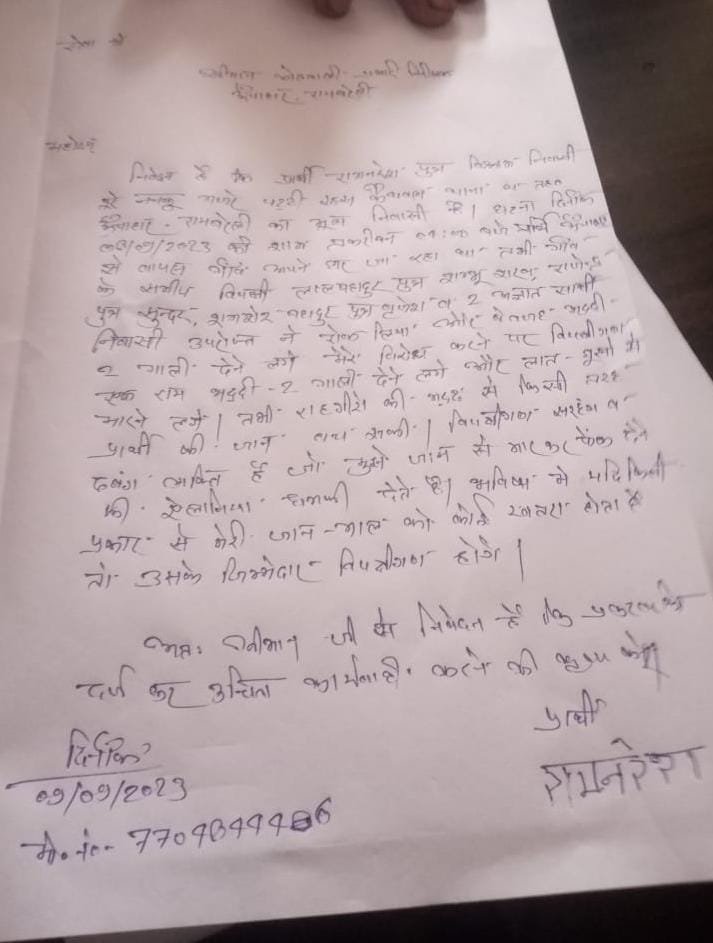 सेवा में
श्रीमान कोतवाली प्रभारी निरीक्षक
ऊँचाहार, रायबरेली
महोदय
निवेदन है कि प्रार्थी रामनरेश पुत्र निवासी
पूरे मजरे पट्टी रहस कैथवल थाना व तहसील
ऊँचाहार - रायबरेली का मूल निवासी है। घटना दिनांक
08/09/2023 की शाम तकरीबन बजे प्रार्थी ऊँचाहार
से वापस अपने घर जा रहा था तभी गाँव
के समीप विपक्षी लालबहादुर पुत्र शम्भू
पुत्र सुन्दर, शमशेर बहादुर पुत्र व 2 अज्ञात साथी
निवासी उपरोक्त ने रोक लिया और बेवजह भद्दी-
2 गाली देने लगे मेरे विरोध करने पर विपक्षीगण
एक राय भद्दी-2 गाली देने लगे और लात-घूसों से
मारने लगे। तभी राहगीरों की मदद से किसी तरह
प्रार्थी की जान बच सकी। विपक्षीगण सरहंग व
दबंग व्यक्ति हैं जो मुझे जान से मार कर फेंक देने
की खुलेआम धमकी देते है। भविष्य में यदि किसी
प्रकार से मेरी जान-माल को कोई खतरा होता है
तो उसके जिम्मेदार विपक्षीगण होंगे।
अतः श्रीमान जी से निवेदन है कि प्रकरण को
दर्ज कर उचित कार्यवाही करने की कृपा करें।
प्रार्थी
रामनरेश
दिनांक
09/09/2023
मो० नं०-